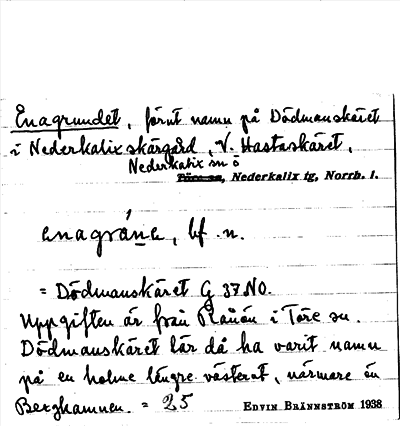 Enagrundet, förnt namn på Dödmanskäret
i Nederkalix skärgård, V. Hastaskäret,
Nederkalix sn ö
Töre sn, Nederkalix tg, Norrb. l.
enagrúne, bf. n.
= Dödmanskäret G 37 NO.
Uppgiften är från Rånön i Töre sn.
Dödmanskäret lär då ha varit namn
på en holme längre västerut, närmare ön
Berghamnen. = 25
EDVIN BRÄNNSTRÖM 1938